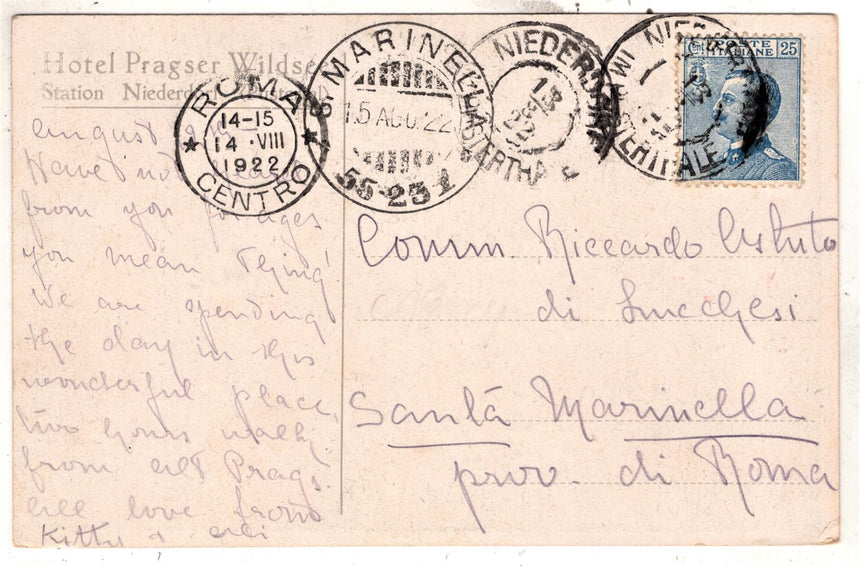 Hotel Pragser Wildsee
Station Niederdorf
ROMA
CENTRO
14-15
14 · VIII
1922
S. MARINELLA
15 AGO. 22
55-251
NIEDERDORF
13
22
NIEDERD
POSTE
ITALIANE
Cent. 25
August
Have not
from you for ages
you mean thing!
We are spending
the day in this
wonderful place,
two hours walk
from alt Prags.
all love from
Kitty &
Comm. Riccardo
di Lucchesi
Santa Marinella
prov. di Roma